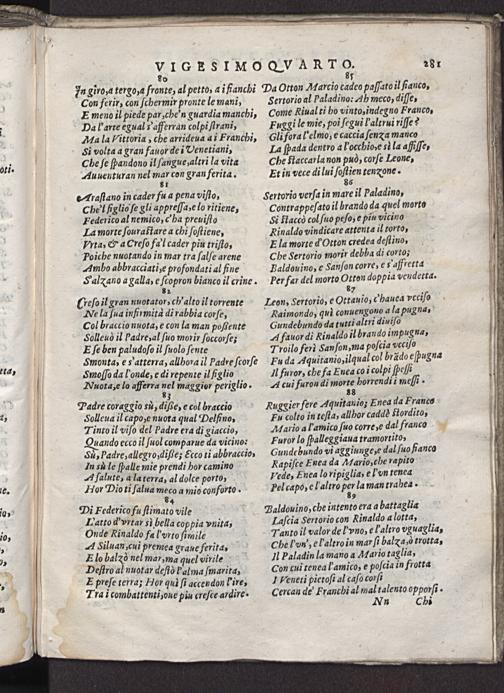 VIGESIMOQVARTO. 281
80
In giro, a tergo, a fronte, al petto, a i fianchi
Con ferir, con schermir pronte le mani,
E meno il piede par, che'n guardia manchi,
Da l'arte egual s'afferran colpi strani,
Ma la Vittoria, che arrideua a i Franchi,
Si volta a gran fauor de i Venetiani,
Che se spandono il sangue, altri la vita
Auuenturan nel mar con gran ferita.
81
Arastano in cader fu a pena visto,
Che'l figlio se gli appressa, e lo ritiene,
Federico al nemico, c'ha preuisto
La morte sourastare a chi sostiene,
Vrta, & a Creso fa'l cader piu tristo,
Poiche nuotando in mar tra salse arene
Ambo abbracciati, e profondati al fine
S'alzano a galla, e scopron bianco il crine.
82
Creso il gran nuotator, ch'alto il torrente
Ne la sua infirmità di rabbia corse,
Col braccio nuota, e con la man possente
Solleuò il Padre, al suo morir soccorse;
E se ben paludoso il suolo sente
Smonta, e s'atterra, allhora il Padre scorse
Smosso da l'onde, e di repente il figlio
Nuota, e lo afferra nel maggior periglio.
83
Padre coraggio sù, disse, e col braccio
Solleua il capo, e nuota qual Delfino,
Tinto il viso del Padre era di giaccio,
Quando ecco il suol comparue da vicino:
Sù, Padre, allegro, disse; Ecco ti abbraccio,
In sù le spalle mie prendi hor camino
A salute, a la terra, al dolce porto,
Hor Dio ti salua meco a mio conforto.
84
Di Federico fu stimato vile
L'atto d'vrtar sì bella coppia vnita,
Onde Rinaldo fa l'vrto simile
A Siluan, cui premea graue ferita,
E lo balzò nel mar, ma quel virile
Destro al nuotar destò l'alma smarita,
E prese terra; Hor quì si accendon l'ire,
Tra i combattenti, oue piu cresce ardire.
85
Da Otton Marcio cadeo passato il fianco,
Sertorio al Paladino: Ah meco, disse,
Come Riual ti ho vinto, indegno Franco,
Fuggi le mie, poi segui l'altrui risse?
Gli fora l'elmo, e caccia senza manco
La spada dentro a l'occhio, e sì la affisse,
Che staccarla non può, corse Leone,
Et in vece di lui sostien tenzone.
86
Sertorio versa in mare il Paladino,
Contrappesato il brando da quel morto
Si staccò col suo peso, e piu vicino
Rinaldo vindicare attenta il torto,
E la morte d'Otton credea destino,
Che Sertorio morir debba di corto;
Baldouino, e Sanson corre, e s'affretta
Per far del morto Otton doppia vendetta.
87
Leon, Sertorio, e Ottauio, c'hauea vcciso
Raimondo, quì conuengono a la pugna,
Gundebundo da tutti altri diuiso
A fauor di Rinaldo il brando impugna,
Troilo ferì Sanson, ma poscia vcciso
Fu da Aquitanio, il qual col brãdo espugna
Il furor, che fa Enea co i colpi spessi
A cui furon di morte horrendi i messi.
88
Ruggier fere Aquitanio; Enea da Franco
Fu colto in testa, all'hor caddè stordito,
Mario a l'amico suo corre, e dal franco
Furor lo spalleggiana tramortito,
Gundebundo vi aggiunge, e dal suo fianco
Rapisce Enea da Mario, che rapito
Vede, Enea lo ripiglia, e l'vn tenea
Pel capo, e l'altro per la man trahea.
89
Baldouino, che intento era a battaglia
Lascia Sertorio con Rinaldo a lotta,
Tanto il valor de l'vno, e l'altro vguaglia,
Che l'vn', e l'altro in mar si balza, ò trotta,
Il Paladin la mano a Mario taglia,
Con cui tenea l'amico, e poscia in frotta
I Veneti pietosi al caso corsi
Cercan de' Franchi al mal talento opporsi.
Nn Chi